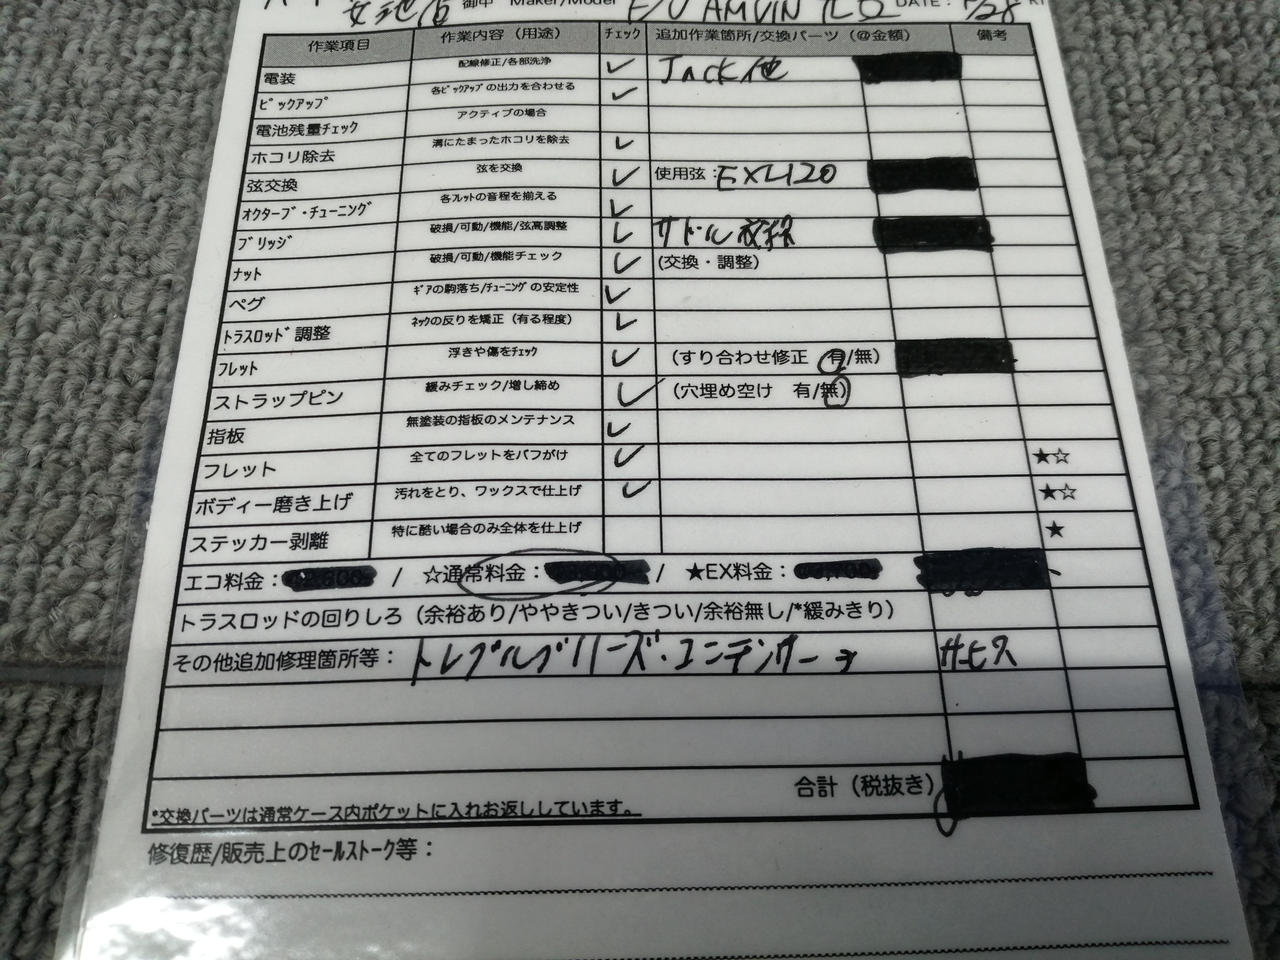 御中 Maker/Model F/J AMVIN DATE: 1/28
作業項目 作業内容（用途） チェック 追加作業箇所/交換パーツ（@金額） 備考
電装 配線修正/各部洗浄 ✓ Jack他
ﾋﾟｯｸｱｯﾌﾟ 各ﾋﾟｯｸｱｯﾌﾟの出力を合わせる ✓
電池残量ﾁｪｯｸ アクティブの場合
ホコリ除去 溝にたまったホコリを除去 ✓
弦交換 弦を交換 ✓ 使用弦：EXL120
ｵｸﾀｰﾌﾞ・ﾁｭｰﾆﾝｸﾞ 各ﾌﾚｯﾄの音程を揃える ✓
ﾌﾞﾘｯｼﾞ 破損/可動/機能/弦高調整 ✓ サドル
ﾅｯﾄ 破損/可動/機能チェック ✓ (交換・調整)
ペグ ｷﾞｱの駒落ち/ﾁｭｰﾆﾝｸﾞの安定性 ✓
ﾄﾗｽﾛｯﾄﾞ調整 ﾈｯｸの反りを矯正（有る程度） ✓
ﾌﾚｯﾄ 浮きや傷をﾁｪｯｸ ✓ （すり合わせ修正 有/無）
ストラップピン 緩みチェック/増し締め ✓ （穴埋め空け 有/無）
指板 無塗装の指板のメンテナンス ✓
フレット 全てのフレットをバフがけ ✓ ★☆
ボディー磨き上げ 汚れをとり、ワックスで仕上げ ✓ ★☆
ステッカー剥離 特に酷い場合のみ全体を仕上げ ★
エコ料金： / ☆通常料金： / ★EX料金：
トラスロッドの回りしろ（余裕あり/ややきつい/きつい/余裕無し/*緩みきり）
その他追加修理箇所等：トレブルブリーズ・コンデンサー サービス
合計（税抜き）
*交換パーツは通常ケース内ポケットに入れお返ししています。
修復歴/販売上のｾｰﾙｽﾄｰｸ等：